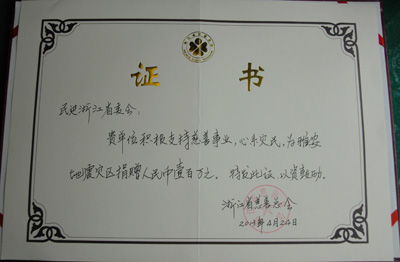 证 书
民进浙江省委会:
贵单位积极支持慈善事业,心系灾民,为雅安
地震灾区捐赠人民币壹百万元。特发此证,以资鼓励。
浙江省慈善总会
2013年4月24日